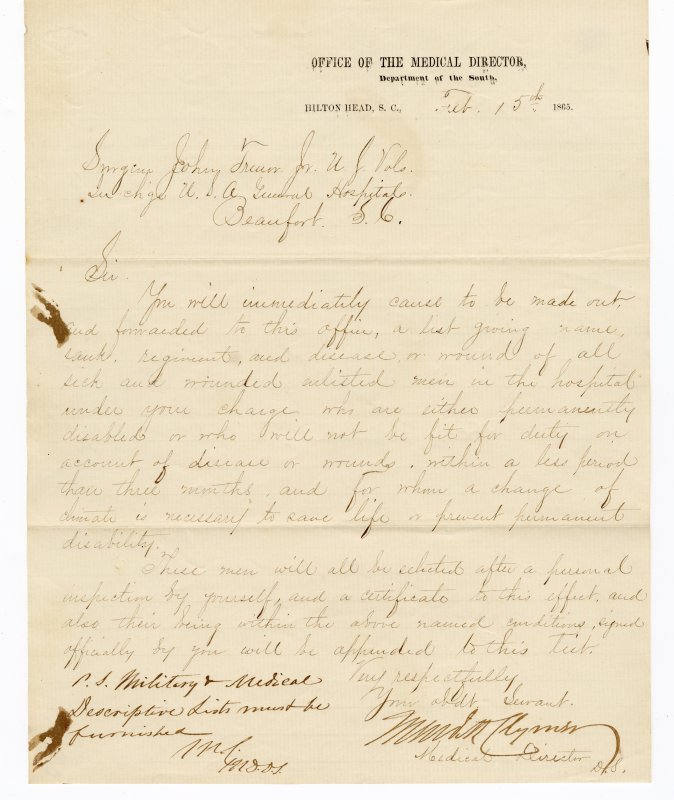 OFFICE OF THE MEDICAL DIRECTOR,
Department of the South,
HILTON HEAD, S. C., Feb. 15th 1865.
Surgeon John Trenor Jr. U. S. Vols.
In chge U. S. A. General Hospitals
Beaufort. S. C.
Sir.
You will immediately cause to be made out,
and forwarded to this office, a list giving name,
rank, regiment, and disease or wound of all
sick and wounded enlisted men in the hospital
under your charge who are either permanently
disabled or who will not be fit for duty on
account of disease or wounds, within a less period
than three months, and for whom a change of
climate is necessary to save life or prevent permanent
disability.
These men will all be selected after a personal
inspection by yourself, and a certificate to this effect, and
also their being within the above named conditions, signed
officially by you will be appended to this List.
Very respectfully
Your obdt Servant.
P.S. Military & Medical
Descriptive Lists must be
furnished
M. C.
M.D.D.S.
Meredith Clymer
Medical Director D.S.